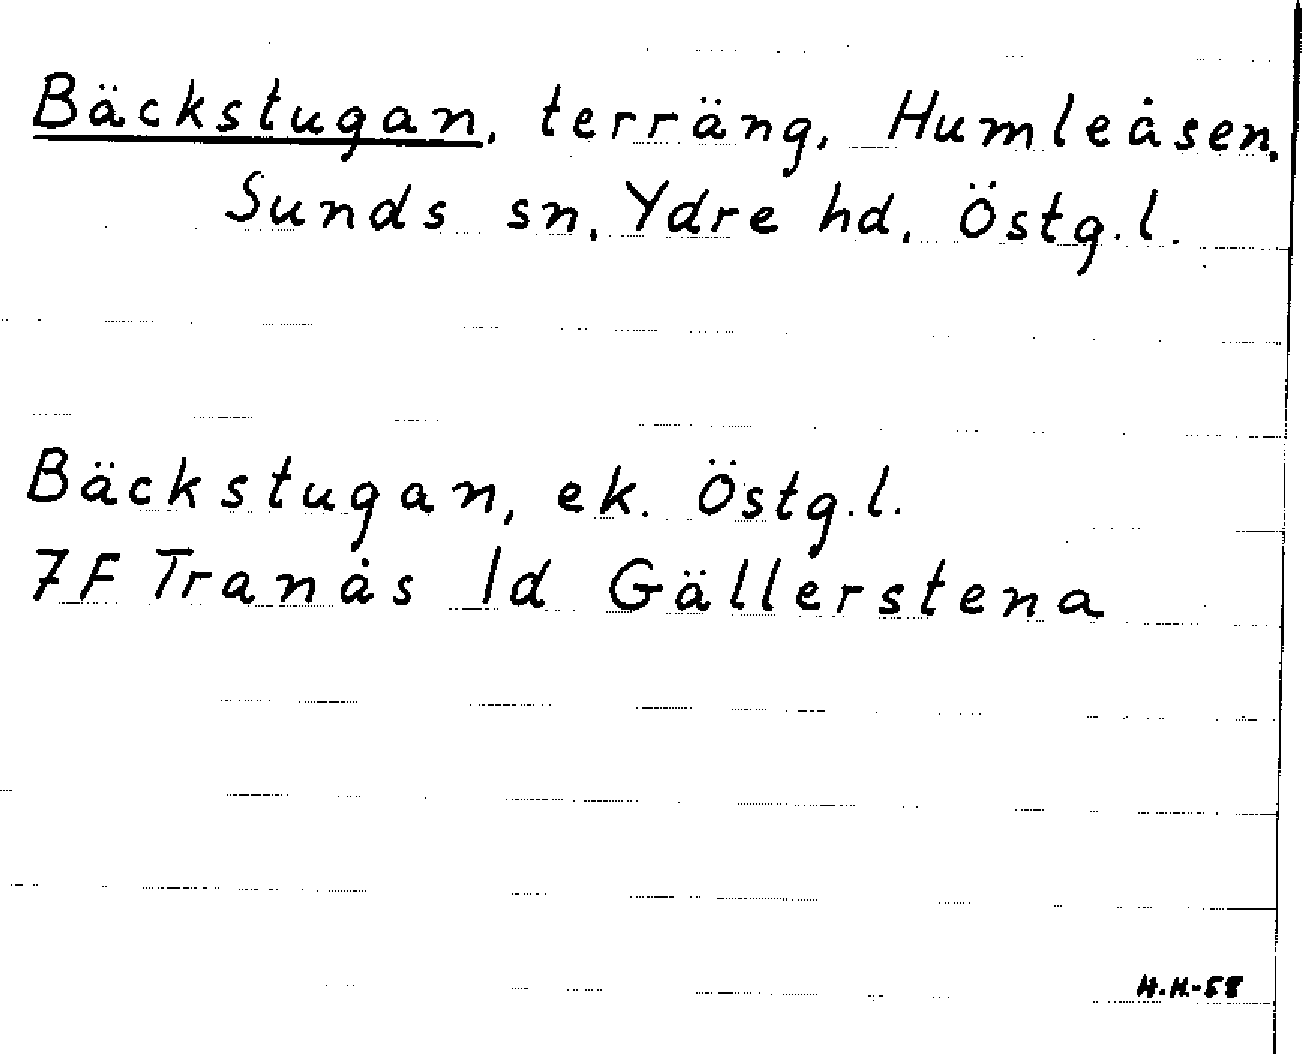 Bäckstugan, terräng, Humleåsen,
Sunds sn, Ydre hd, Östg.l.
Bäckstugan, ek. Östg.l.
7F Tranås 1d Gällerstena
H.H-58